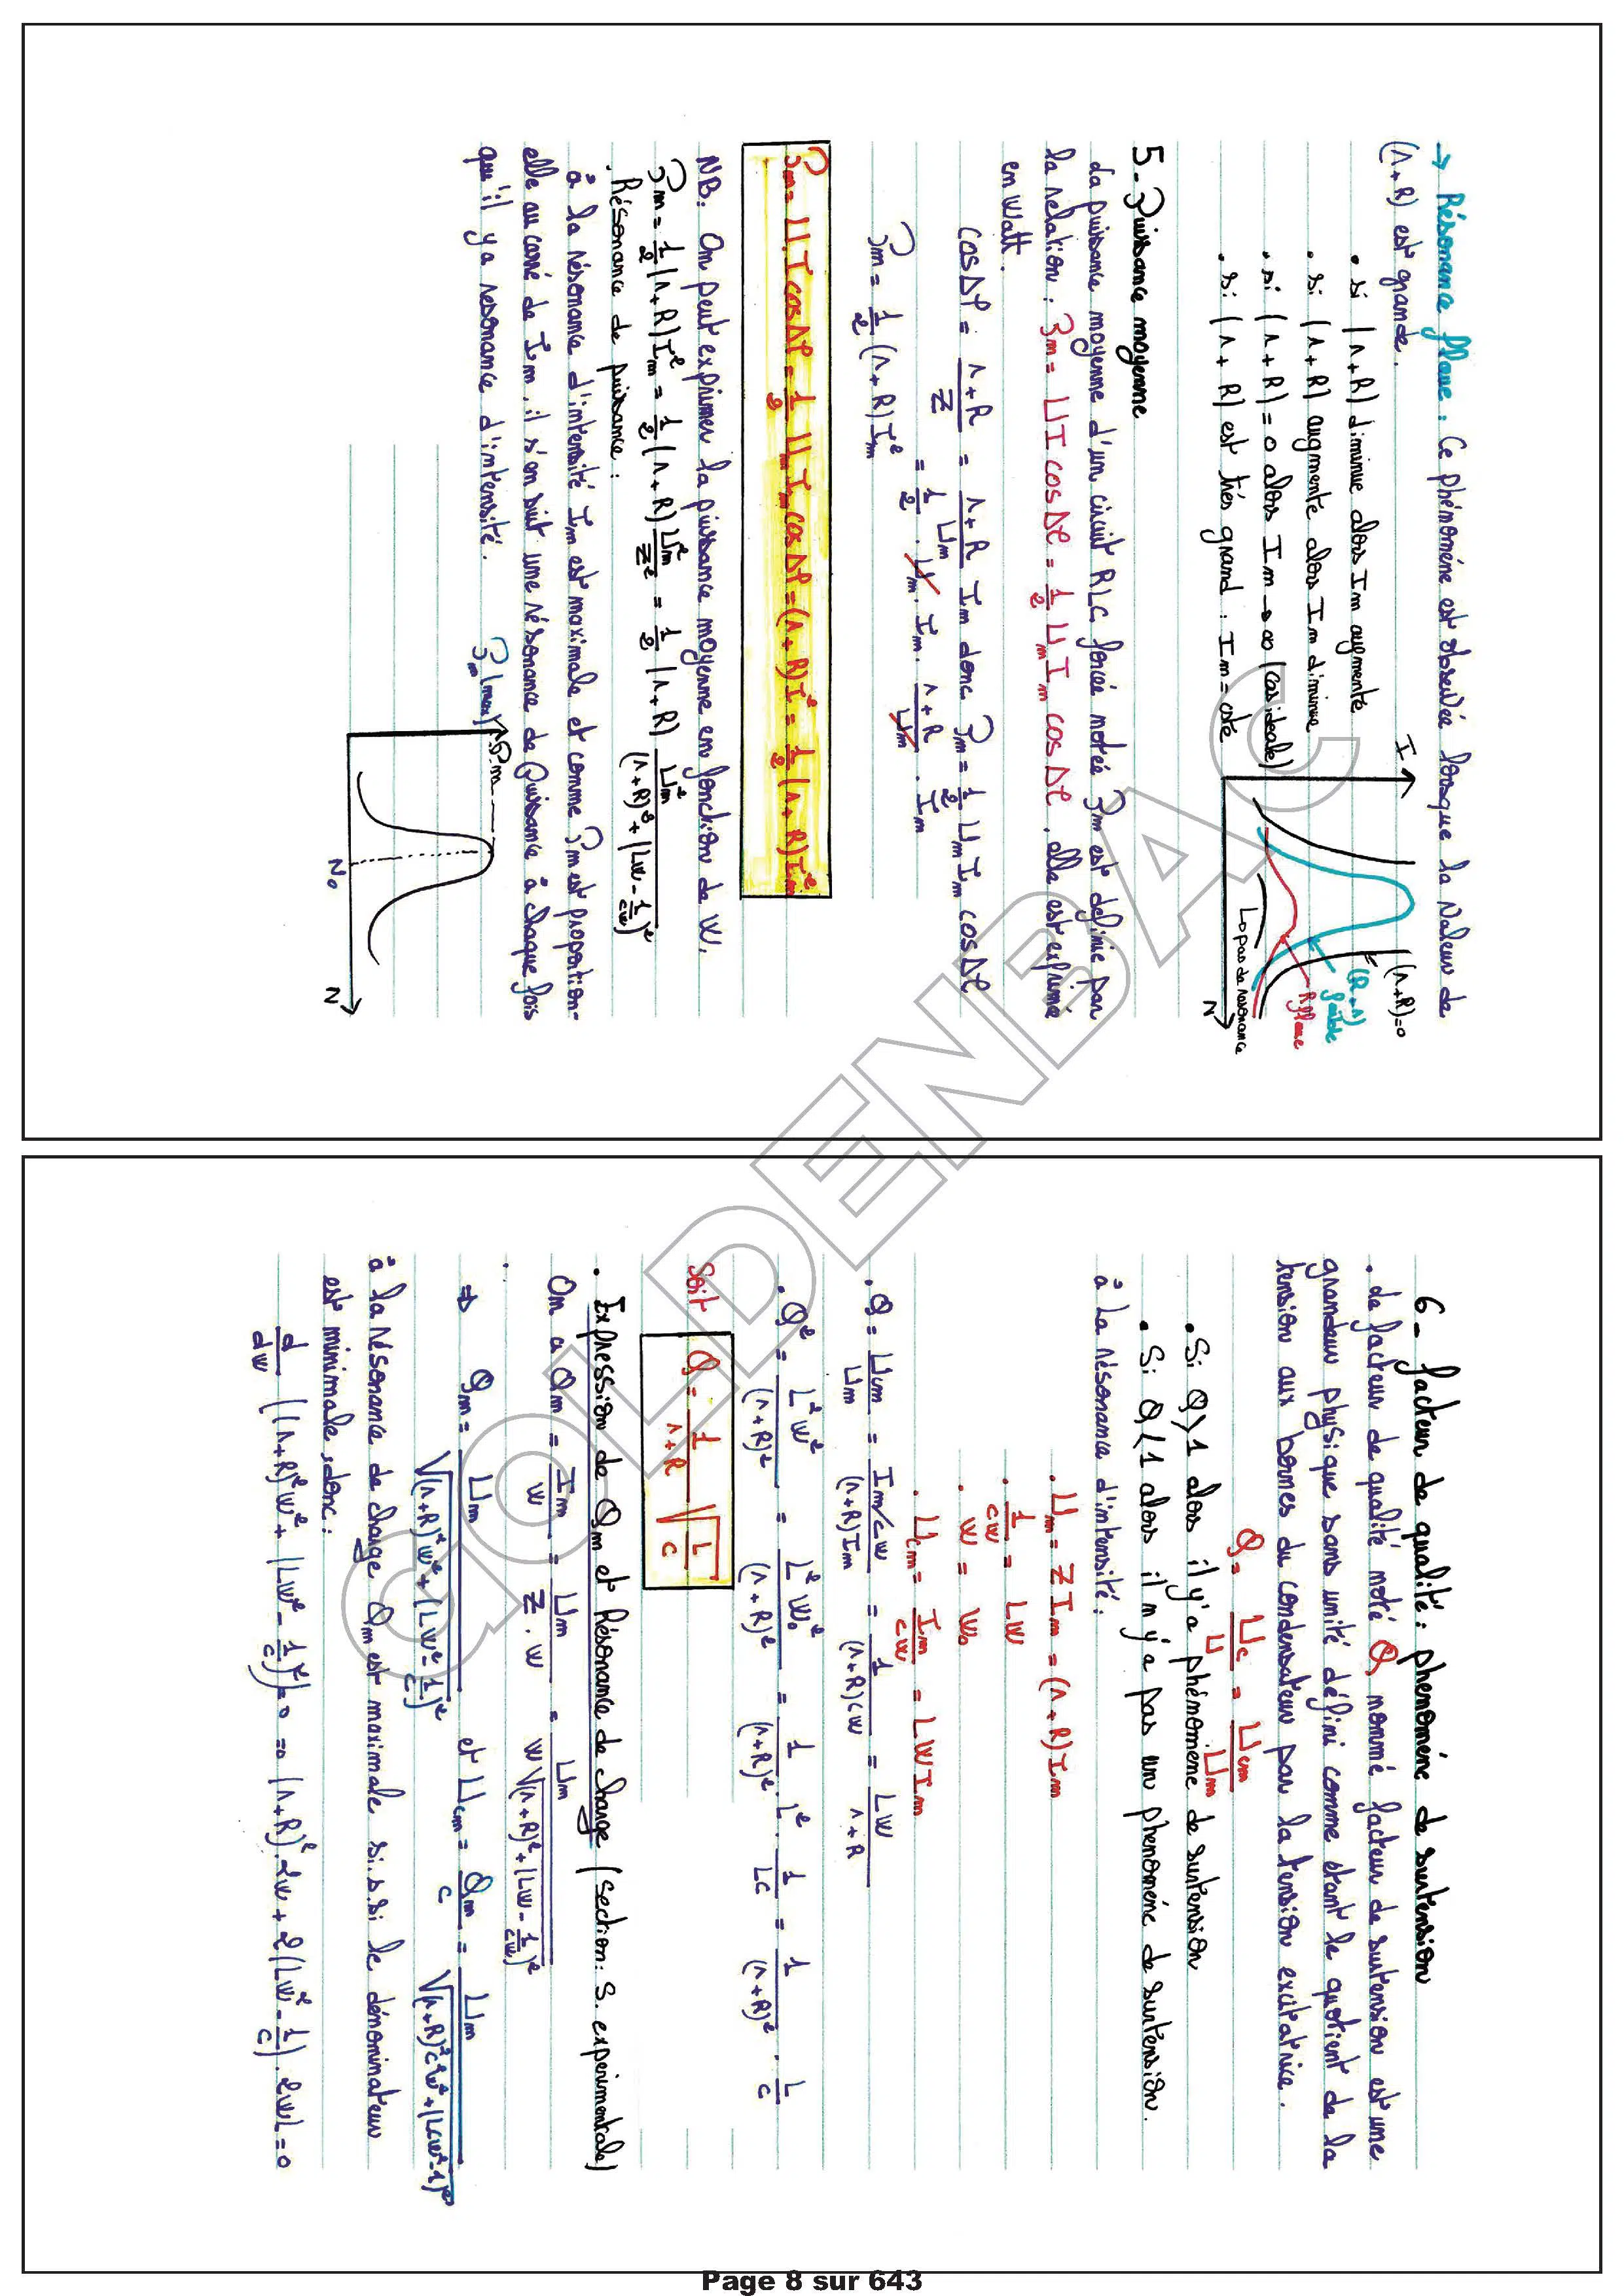 → Résonance floue : Ce phénomène est observée lorsque la valeur de
(r+R) est grande.
• si (r+R) diminue alors Im augmente
• si (r+R) augmente alors Im diminue
• si (r+R) = 0 alors Im → ∞ (cas idéale)
• si (r+R) est très grand : Im = cste
I
(r+R)=0
(R+r) faible
R floue
↳ pas de résonance
N
5- Puissance moyenne
La puissance moyenne d'un circuit RLC forcée notée Pm est définie par
la relation : Pm = UI cos Δφ = 1/2 Um Im cos Δφ, elle est exprimé
en Watt.
cos Δφ = (r+R)/Z = (r+R)/Um Im donc Pm = 1/2 Um Im cos Δφ
= 1/2 . Um . Im . (r+R)/Um . Im
Pm = 1/2 (r+R) Im²
Pm = U.I cos Δφ = 1/2 . Um Im cos Δφ = (r+R) I² = 1/2 (r+R) Im²
NB: On peut exprimer la puissance moyenne en fonction de W,
Pm = 1/2 (r+R) Im² = 1/2 (r+R) Um²/Z² = 1/2 (r+R) Um²/((r+R)² + (Lw - 1/cw)²)
. Résonance de puissance :
à la résonance d'intensité Im est maximale et comme Pm est proportion-
elle au carré de Im, il s'en suit une résonance de Puissance à chaque fois
qu'il y a resonance d'intensité.
Pm
Pm(max)
N0
N
6- facteur de qualité : phénomène de surtension
. Le facteur de qualité noté Q, nommé facteur de surtension est une
grandeur physique sans unité défini comme étant le quotient de la
tension aux bornes du condensateur par la tension excitatrice.
Q = Uc/U = Ucm/Um
• Si Q>1 alors il y'a phénomène de surtension
• Si Q<1 alors il n'y'a pas un phénomène de surtension.
à la résonance d'intensité :
. Um = Z Im = (r+R) Im
. 1/cw = Lw
. w = w0
. Ucm = Im/cw = LW Im
. Q = Ucm/Um = (Im/cw)/((r+R)Im) = 1/((r+R)cw) = Lw/(r+R)
. Q² = L²w²/(r+R)² = L²w0²/(r+R)² = 1/(r+R)² . L² . 1/LC = 1/(r+R)² . L/C
Soit Q = 1/(r+R) √(L/C)
. Expression de Qm et Résonance de charge (section: S. expérimentale)
On a Qm = Im/w = Um/(Z.w) = Um/(w√((r+R)² + (Lw - 1/cw)²))
⇒ Qm = Um/√((r+R)²w² + (Lw² - 1/c)²) et Ucm = Qm/c = Um/√((r+R)²c²w² + (Lcw² - 1)²)
à la résonance de charge Qm est maximale si.s.si le dénominateur
est minimale, donc :
d/dw ((r+R)²w² + (Lw² - 1/c)²) = 0 ⇒ (r+R)².2w + 2(Lw² - 1/c).2wL = 0
GOLDENBAC
Page 8 sur 643